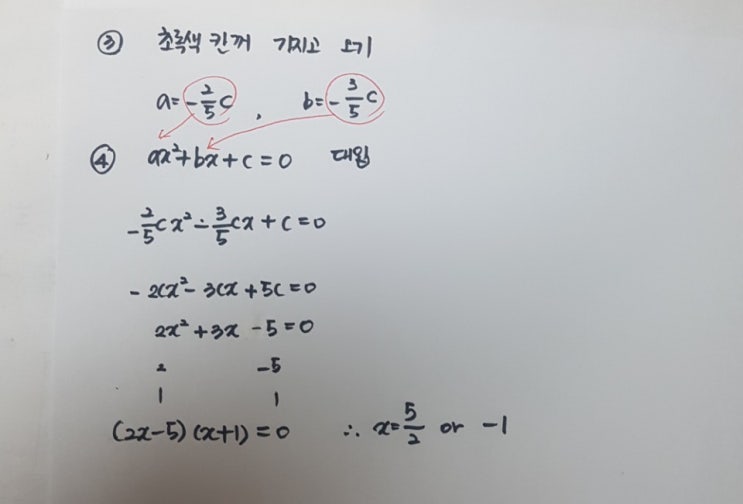 ③ 초록색 친꺼 가지고 오기
a=-2/5c, b=-3/5c
④ ax²+bx+c=0 대입
-2/5cx²-3/5cx+c=0
-2cx²-3cx+5c=0
2x²+3x-5=0
2 -5
1 1
(2x-5)(x+1)=0 ∴ x=5/2 or -1